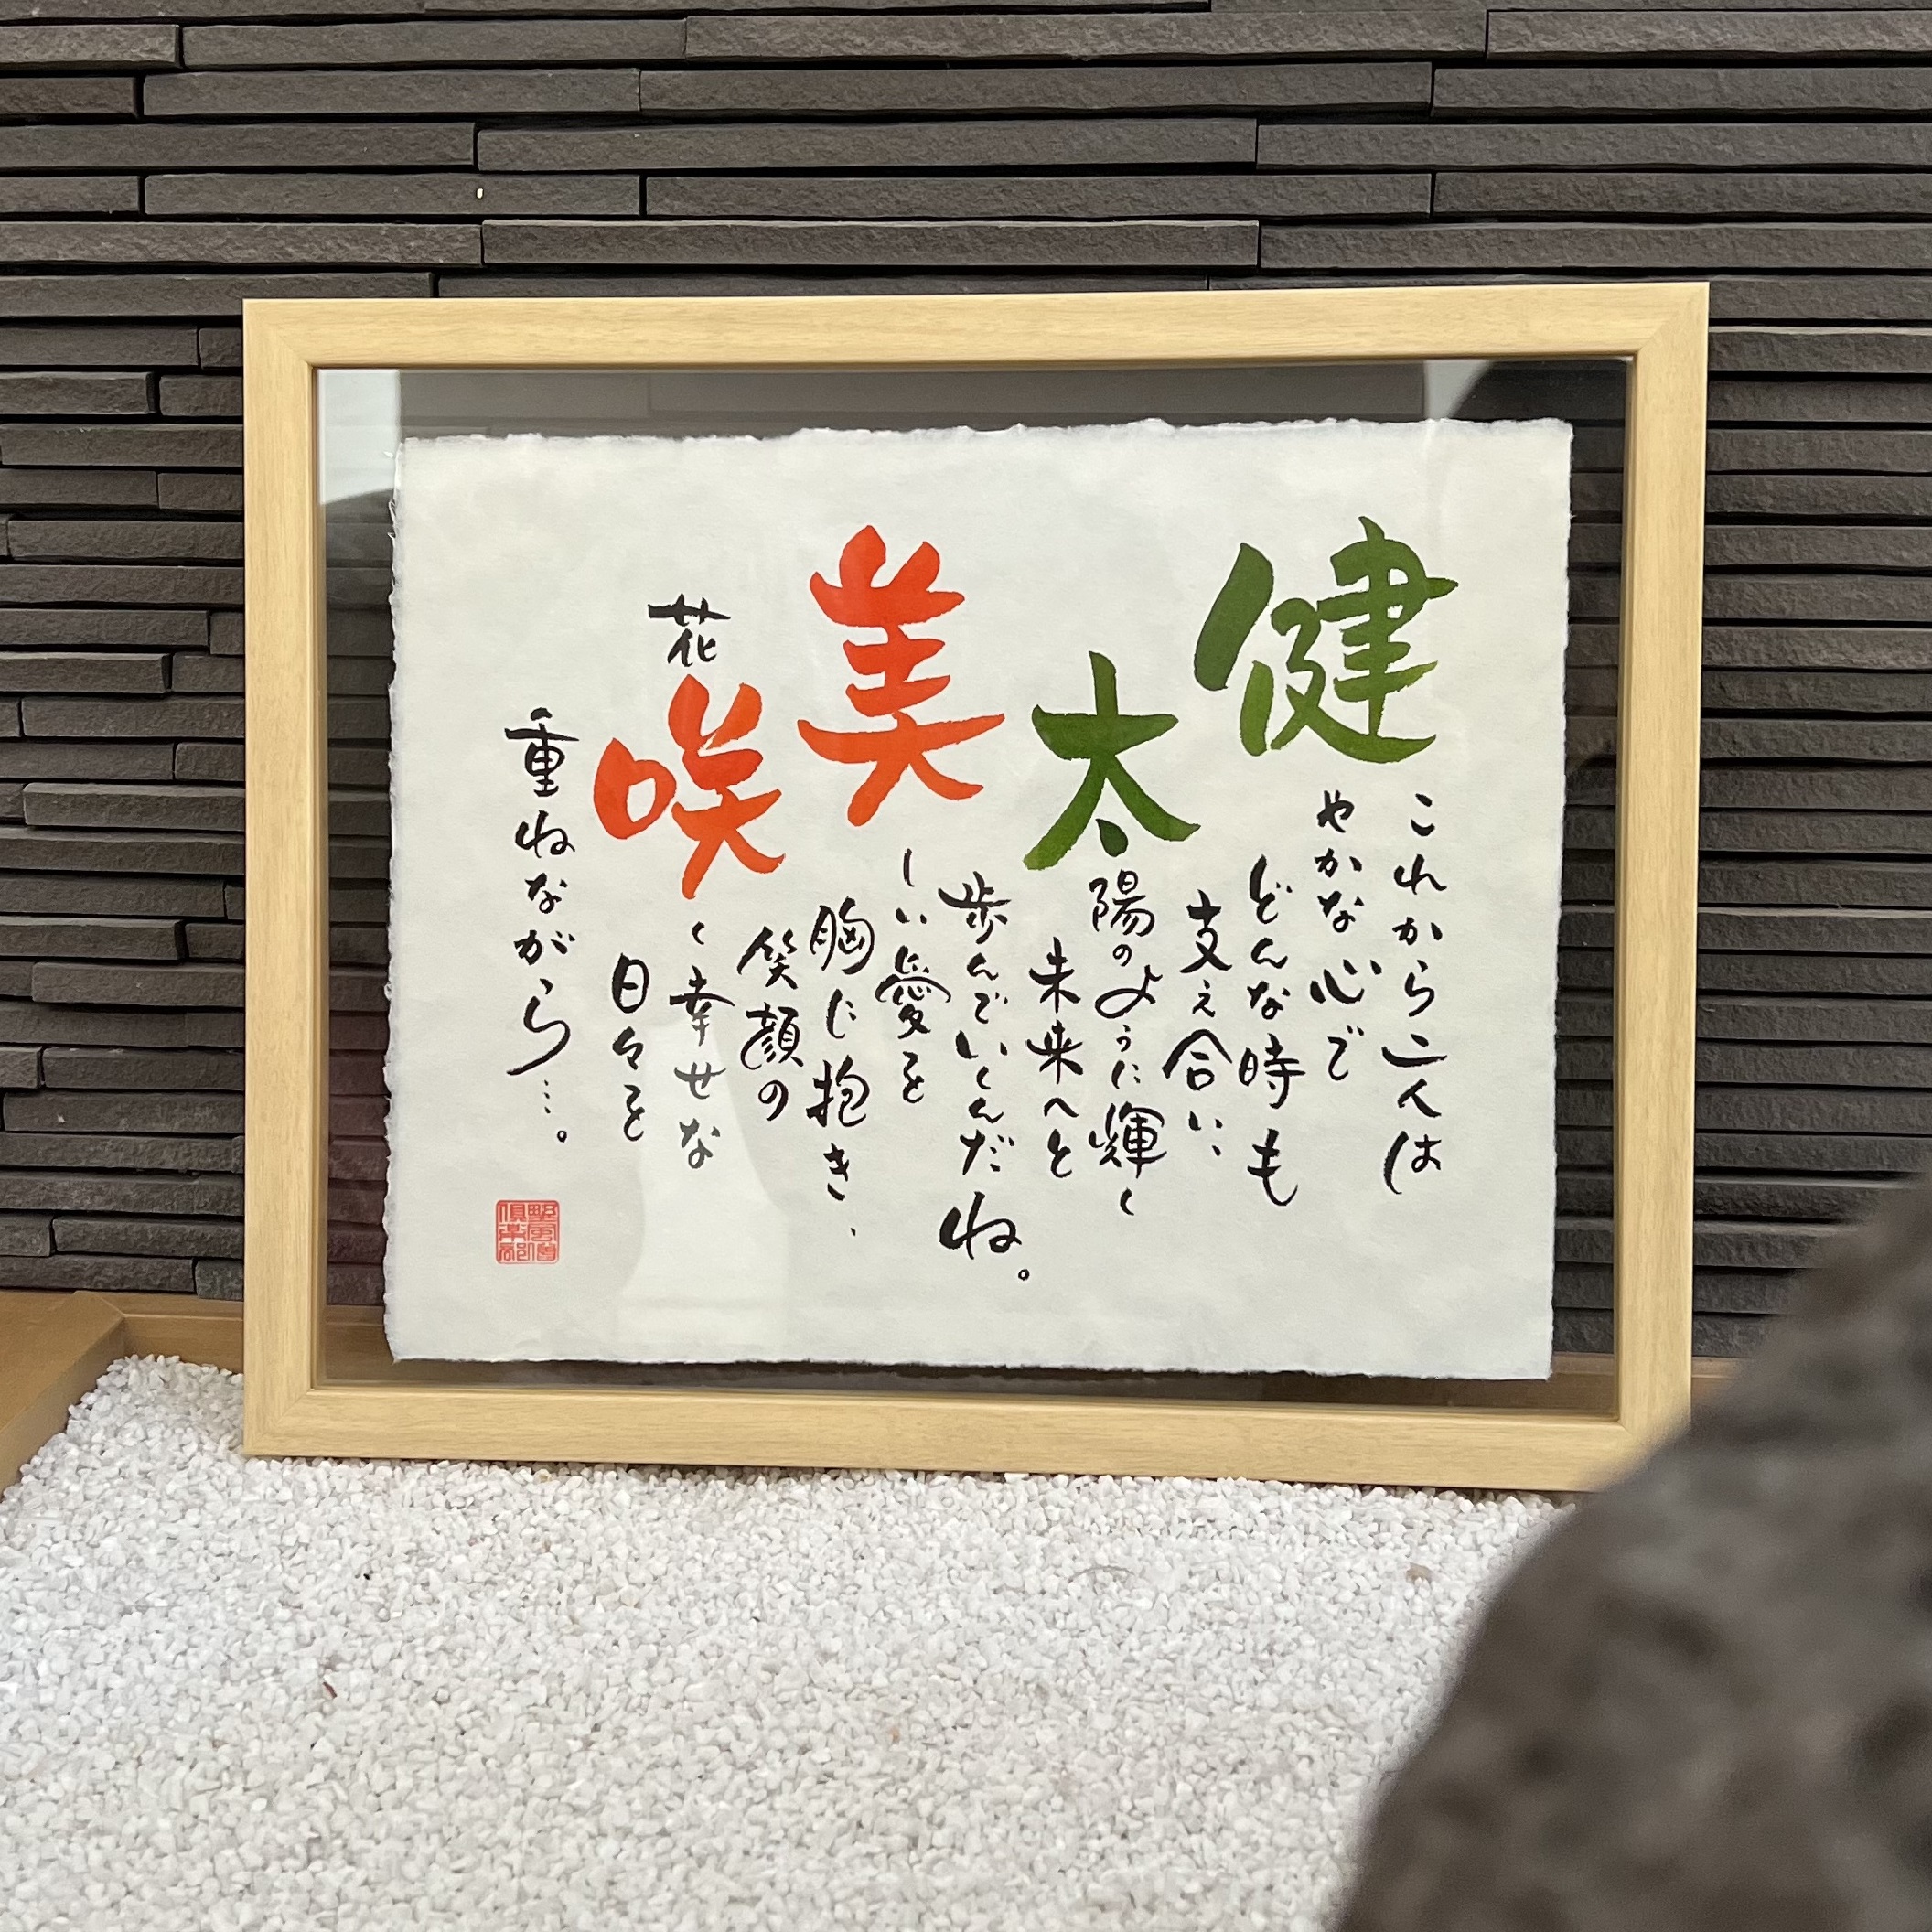 これから二人は
健やかな心で
どんな時も
支え合い、
太陽のように輝く
未来へと
歩んでいくんだね。
美しい愛を
胸に抱き、
笑顔の
花咲く幸せな
日々を
重ねながら…。